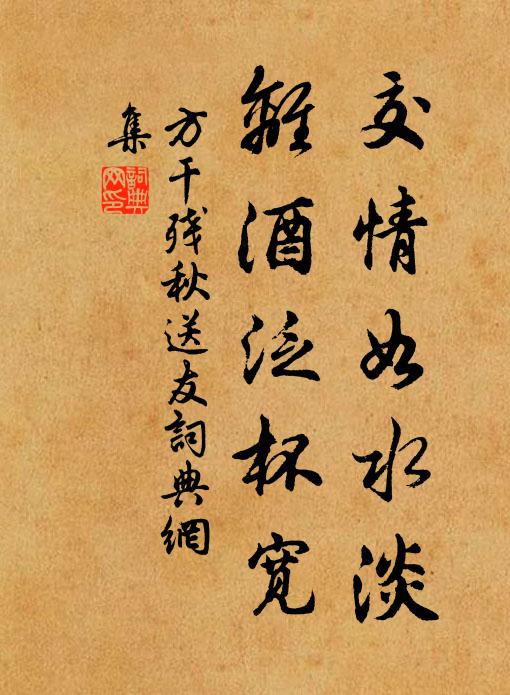 交情如水淡
離酒泛杯寬
方干残秋送友詞典網
集
詞典
网印